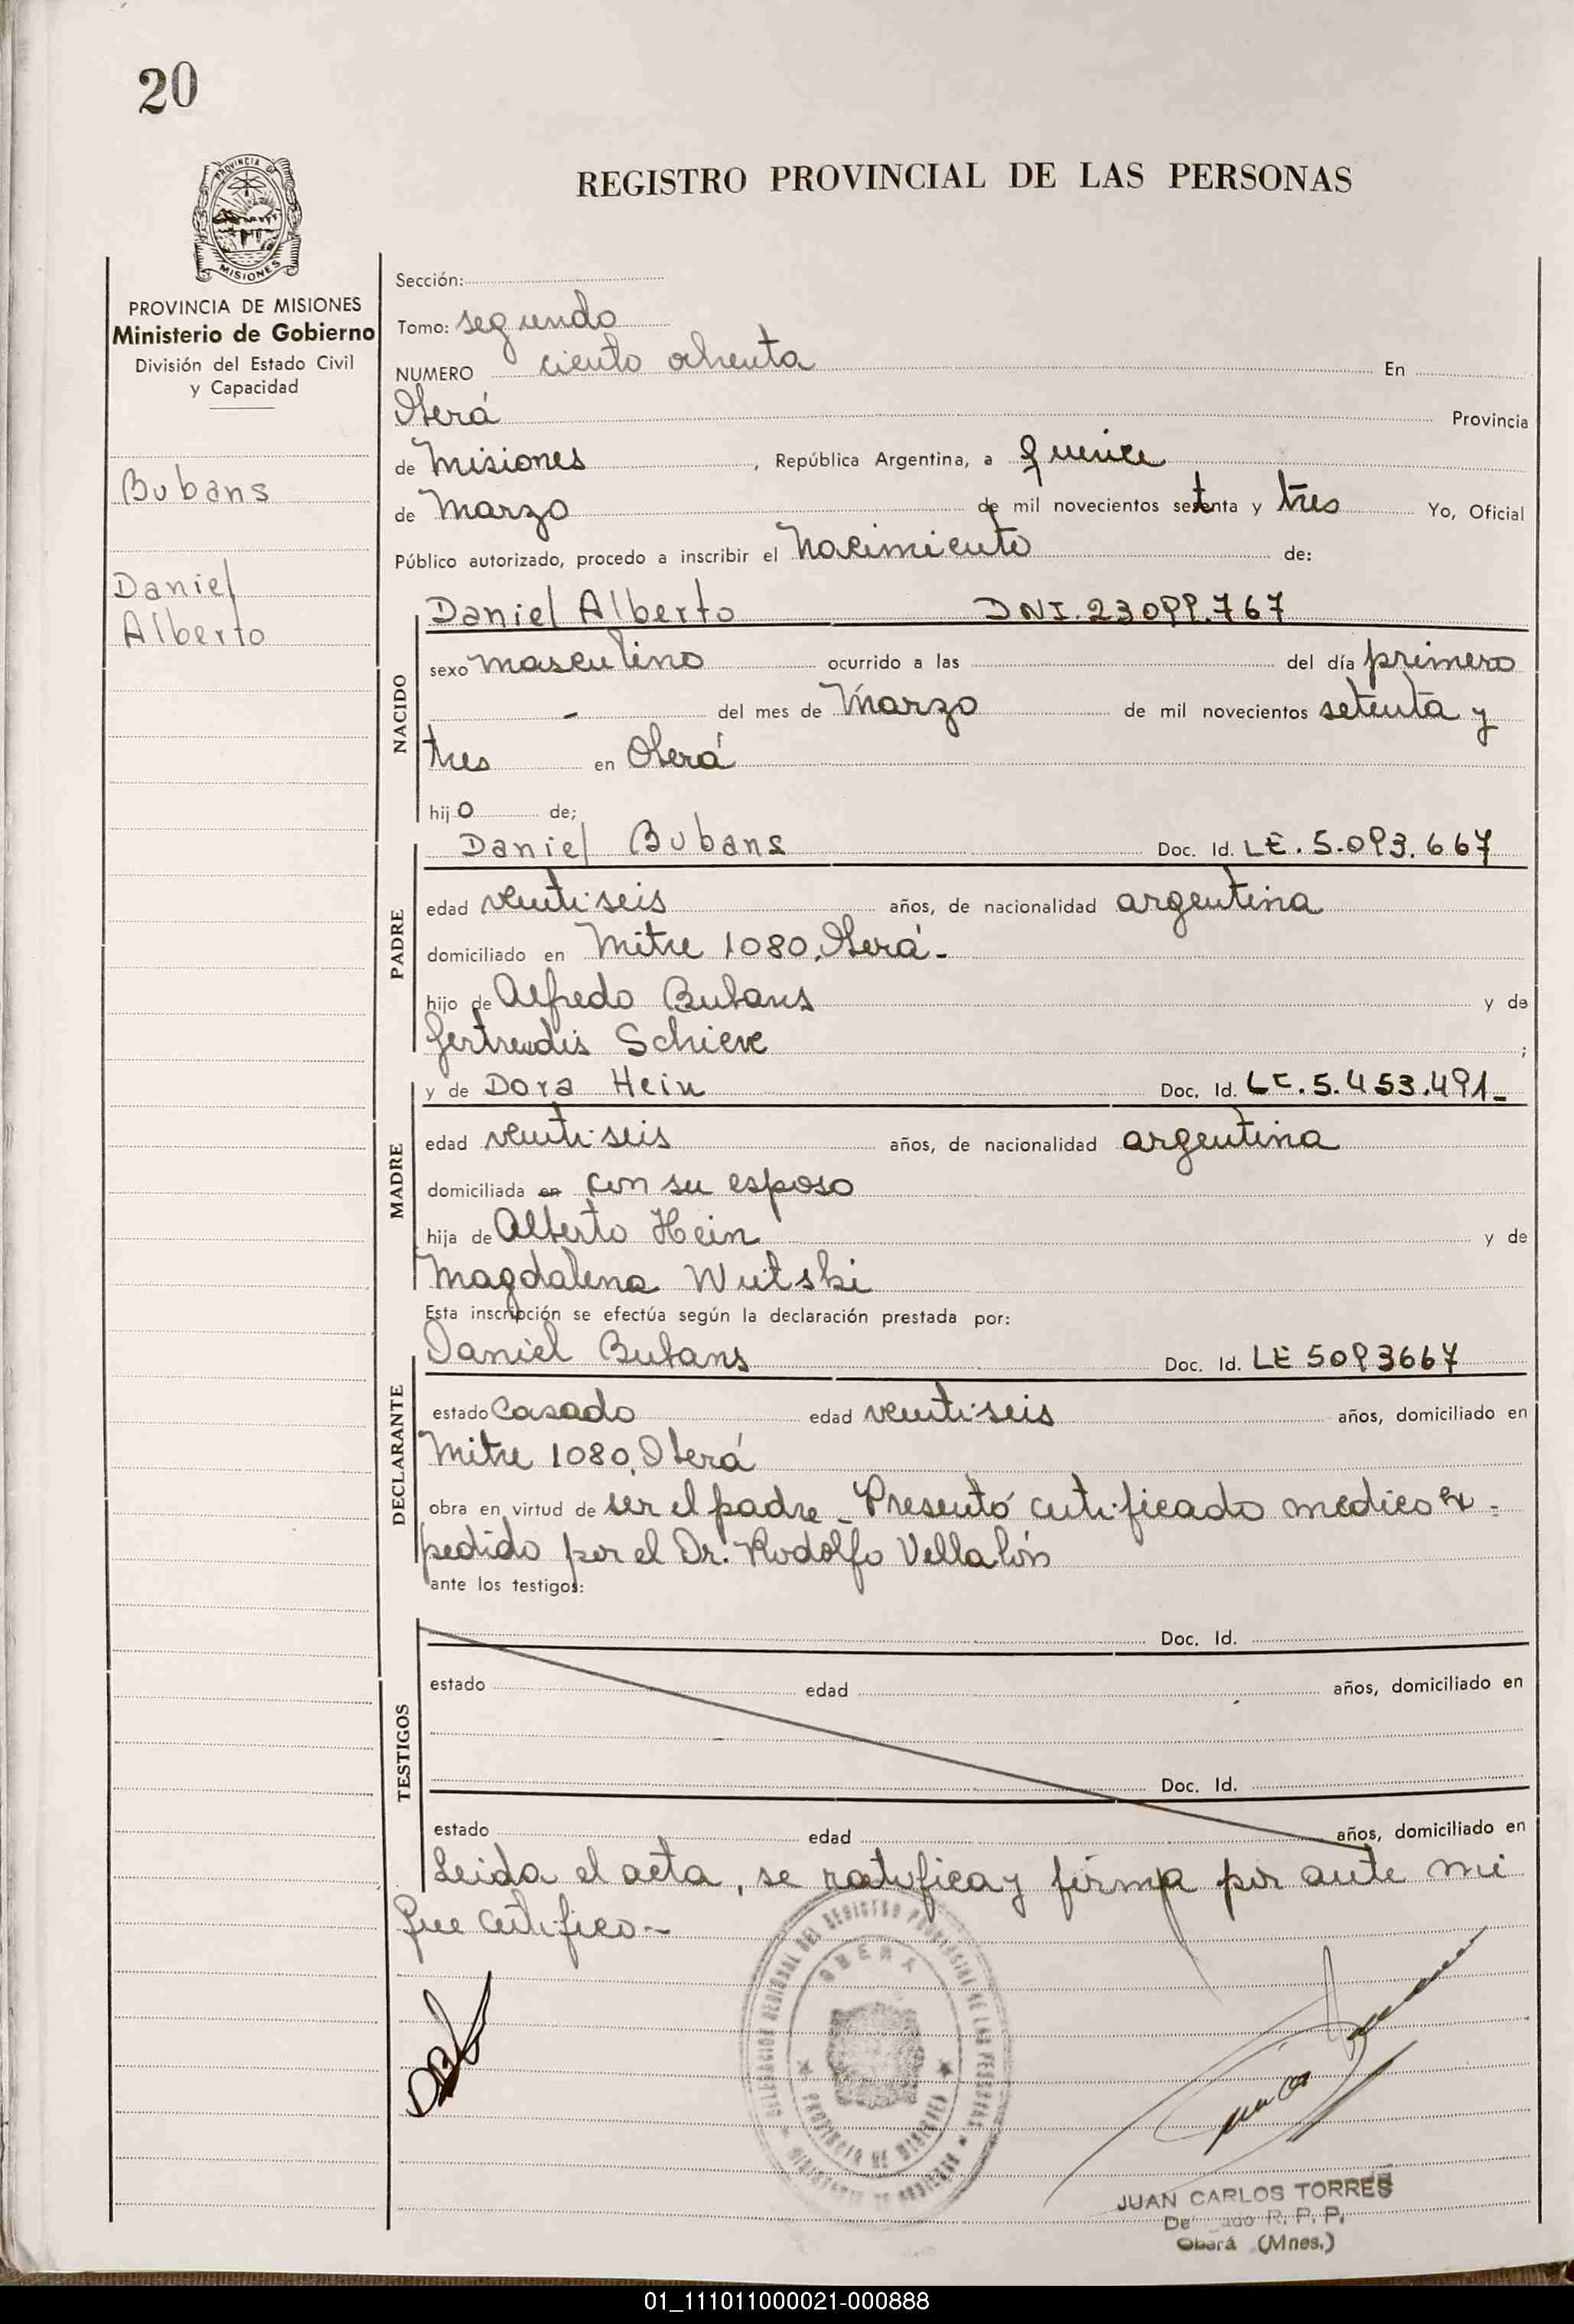 20
PROVINCIA DE
MISIONES
REGISTRO PROVINCIAL DE LAS PERSONAS
PROVINCIA DE MISIONES
Ministerio de Gobierno
División del Estado Civil
y Capacidad
Bubans
Daniel
Alberto
Sección:
Tomo: segundo
NUMERO ciento ochenta En
Oberá Provincia
de Misiones, República Argentina, a quince
de Marzo de mil novecientos setenta y tres Yo, Oficial
Público autorizado, procedo a inscribir el Nacimiento de:
NACIDO
Daniel Alberto DNI. 23099.767
sexo masculino ocurrido a las del día primero
- del mes de Marzo de mil novecientos setenta y
tres en Oberá
hijo de;
PADRE
Daniel Bubans Doc. Id. LE. 5.093.667
edad veinti seis años, de nacionalidad argentina
domiciliado en Mitre 1080, Oberá-
hijo de Alfredo Bubans y de
Gertrudis Schieve ;
MADRE
y de Dora Hein Doc. Id. LC. 5.453.491-
edad veinti seis años, de nacionalidad argentina
domiciliada en con su esposo
hija de Alberto Hein y de
Magdalena Wutski
Esta inscripción se efectúa según la declaración prestada por:
DECLARANTE
Daniel Bubans Doc. Id. LE 5093667
estado Casado edad veinti seis años, domiciliado en
Mitre 1080, Oberá
obra en virtud de ser el padre - Presentó certificado medico ex-
pedido por el Dr. Rodolfo
ante los testigos:
TESTIGOS
Doc. Id.
estado edad años, domiciliado en
Doc. Id.
estado edad años, domiciliado en
Leida el acta, se ratifica y firma por ante mi
que certifico-
DELEGACION REGIONAL DEL REGISTRO PROVINCIAL DE LAS PERSONAS
OBERA
PROVINCIA DE MISIONES
MINISTERIO DE GOBIERNO
JUAN CARLOS TORRES
R. P. P.
Oberá (Mnes.)
01_111011000021-000888